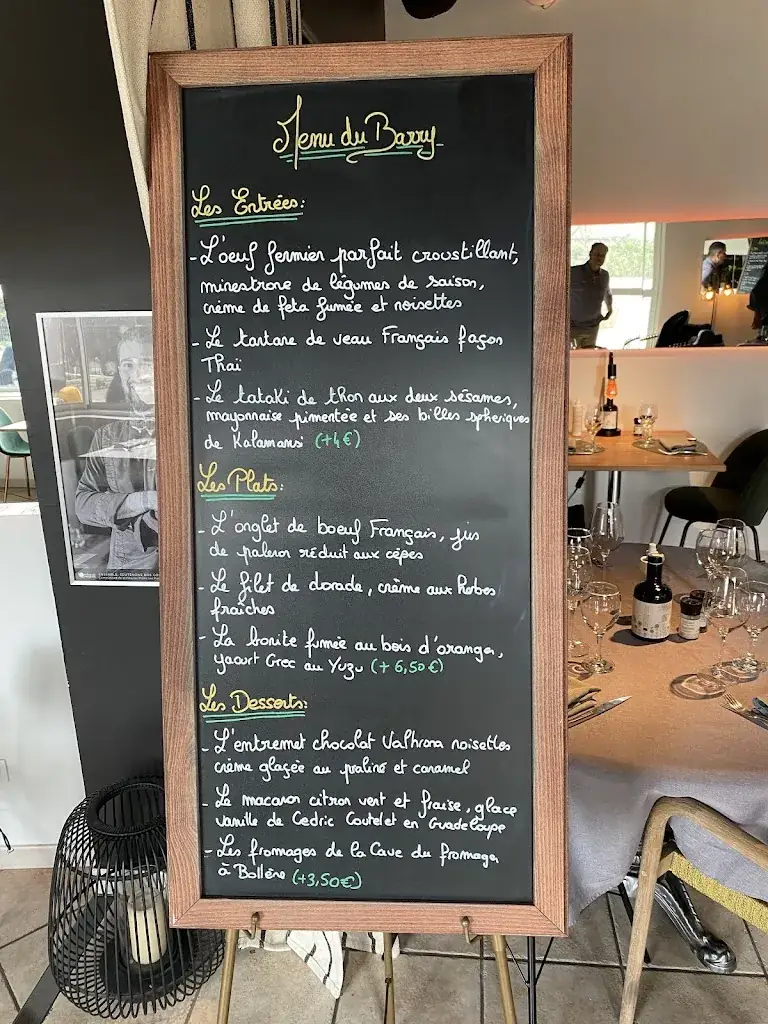 Menu du Barry
Les Entrées:
- L'oeuf fermier parfait croustillant,
minestrone de légumes de saison,
crème de feta fumée et noisettes
- Le tartare de veau Français façon
Thaï
- Le tataki de thon aux deux sésames,
mayonnaise pimentée et ses billes spheriques
de Kalamansi (+4€)
Les Plats:
- L'onglet de boeuf Français, jus
de paleron réduit aux cèpes
- Le filet de dorade, crème aux herbes
fraîches
- La bonite fumée au bois d'oranger,
yaourt Grec au Yuzu (+ 6,50€)
Les Desserts:
- L'entremet chocolat Valhrona noisettes
crème glaçée au praliné et caramel
- Le macaron citron vert et fraise, glace
vanille de Cedric Coutelet en Guadeloupe
- Les fromages de la Cave du fromager
à Bollène (+3,50€)